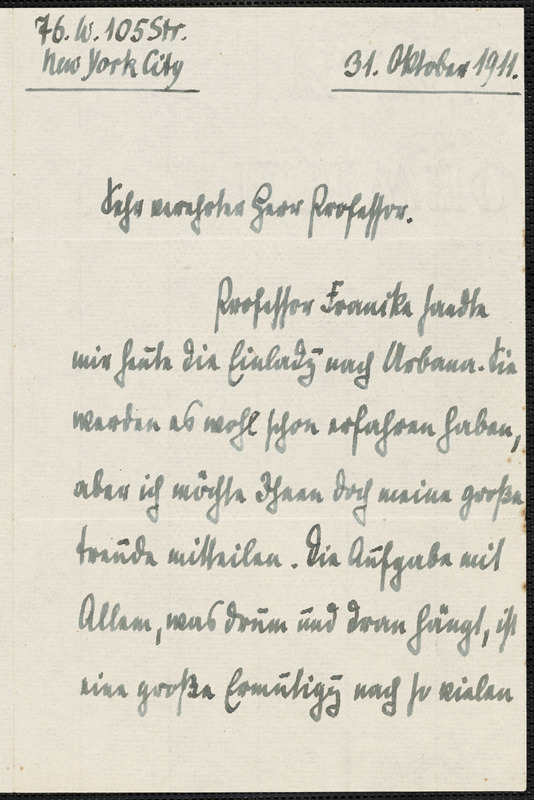 76. W. 105 Str.
New York City
31. Oktober 1911.
Sehr verehrter Herr Professor.
Professor Francke sandte
mir heute die Einladg nach Urbana. Sie
werden es wohl schon erfahren haben,
aber ich möchte Ihnen doch meine große
Freude mitteilen. Die Aufgabe mit
Allem, was drum und dran hängt, ist
eine große Ermutigg nach so vielen